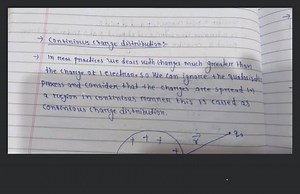 → Continious Charge distribution :-
→ In new practices we deals with charges much greater than
the charge of 1 electron so We can ignore the
process and consider that the charges are spread in
a region in continious manner this is called as
Continious Charge distribution.
+ + +